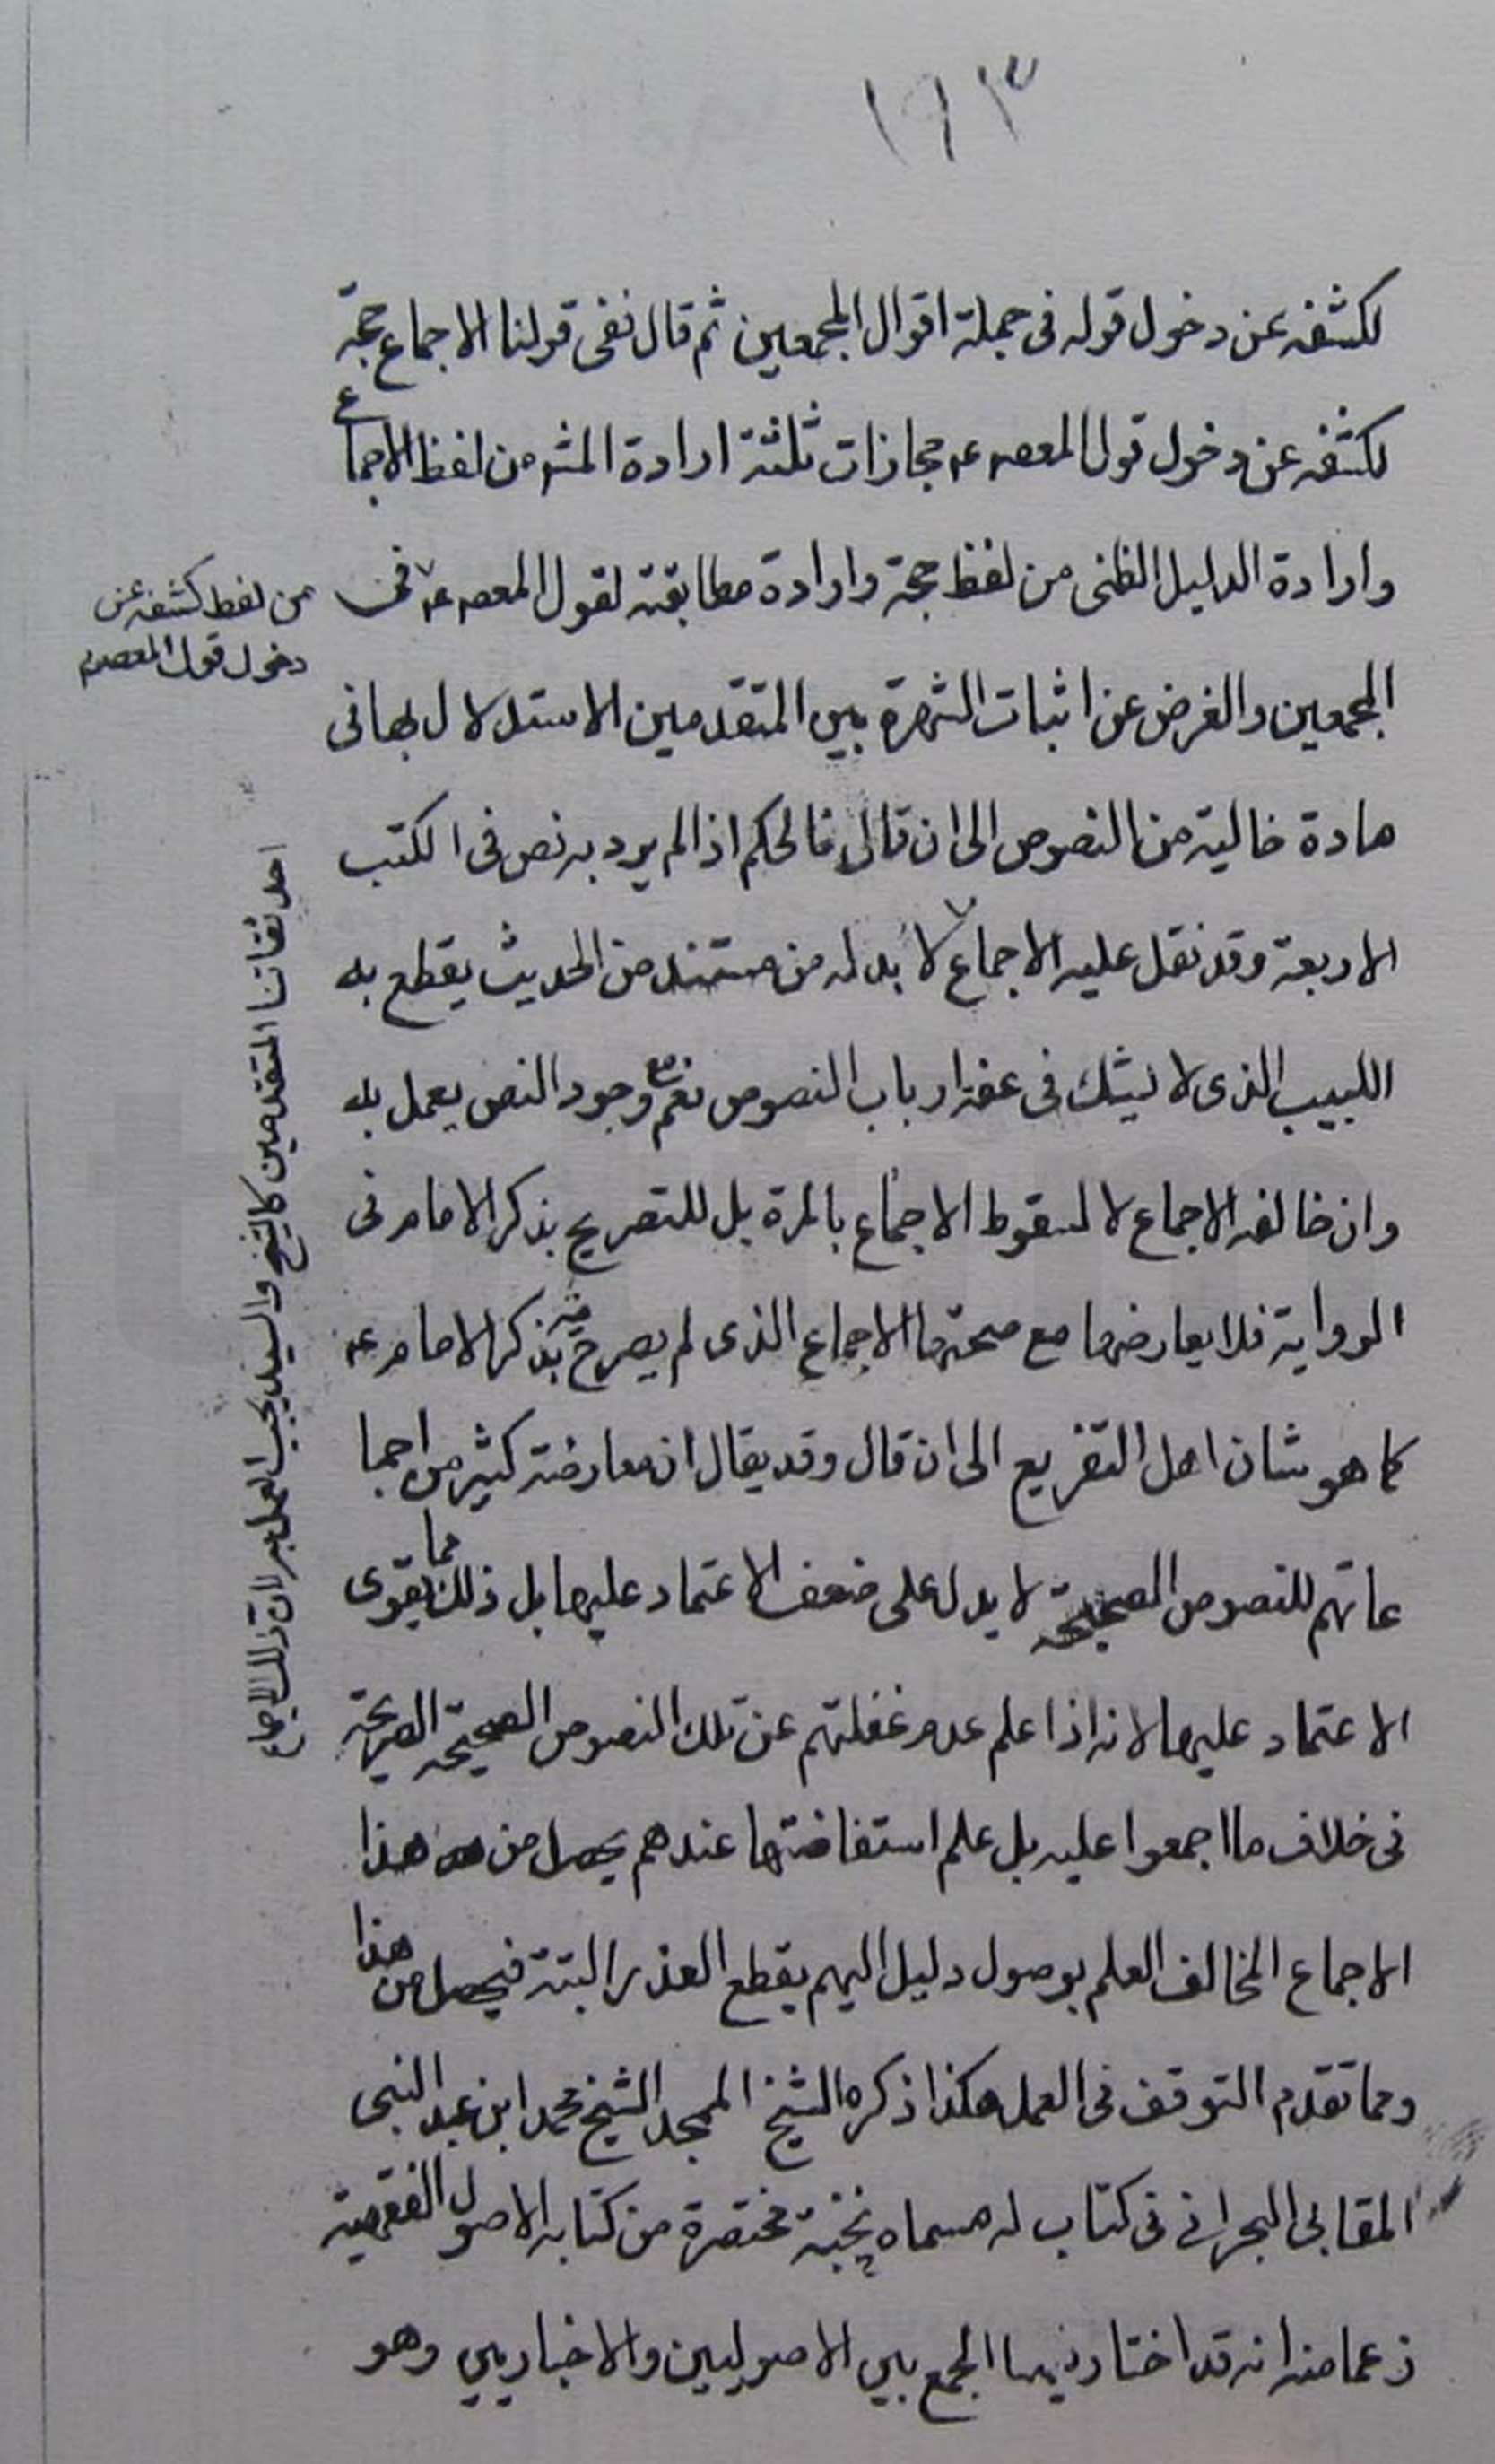 ١٦٣
لكشفه عن دخول قوله فى جملة اقوال المجمعين ثم قال ففى قولنا الاجماع حجة
لكشفه عن دخول قول المعصوم ع مجازات ثلثة ارادة المشهور من لفظ الاجماع
وارادة الدليل الظنى من لفظ حجة وارادة مطابقته لقول المعصوم ع فى
من لفظ كشفه عن
دخول قول المعصوم
المجمعين والغرض عن اثبات الشهرة بين المتقدمين الاستدلال بها فى
مادة خالية من النصوص الى ان قال فالحكم اذا لم يرد به نص فى الكتب
الاربعة وقد نقل عليه الاجماع لا بد له من مستند من الحديث يقطع به
احد ثقاتنا المتقدمين كالشيخ والسيد يجب العمل به لان ذلك الاجماع
اللبيب الذى لا يشك فى عفة ارباب النصوص نعم مع وجود النص يعمل به
وان خالفه الاجماع لا لسقوط الاجماع بالمرة بل للتصريح بذكر الامام فى
الرواية فلا يعارضها مع صحتها الاجماع الذى لم يصرح فيه بذكر الامام ع
كما هو شان اهل التفريع الى ان قال وقد يقال ان معارضة كثير من اجما
عاتهم للنصوص الصحيحة لا يدل على ضعف الاعتماد عليها بل ذلك مما يقوى
الاعتماد عليها لانه اذا علم عدم غفلتهم عن تلك النصوص الصحيحة الصريحة
فى خلاف ما اجمعوا عليه بل علم استفاضتها عندهم يحصل من هذا
الاجماع المخالف العلم بوصول دليل اليهم يقطع العذر البتة فيحصل من هذا
ومما تقدم التوقف فى العمل هكذا ذكره الشيخ الممجد الشيخ محمد ابن عبد النبى
المقابى البحرانى فى كتاب له مسماه نخبة مختصرة من كتابه الاصول الفقهية
زعما منه انه قد اختار فيها الجمع بين الاصوليين والاخباريين وهو